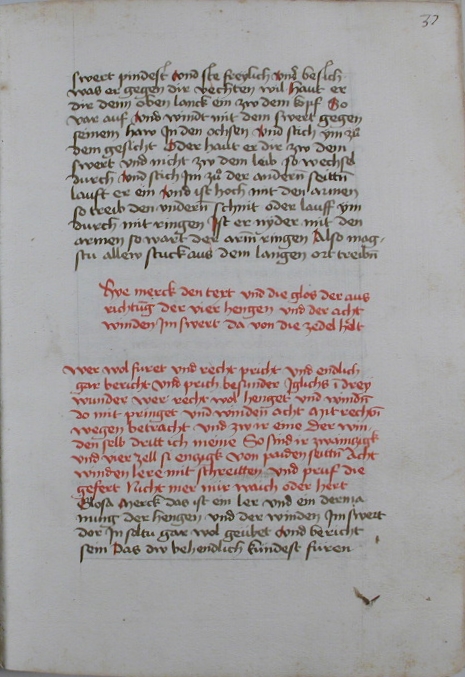 37
swert pindest vnd ste freylich vnd besich
was er gegen dir vechten wil Haut er
dir denn oben lanck ein zw dem kopf So
var auf vnd windt mit dem swert gegen
seinem haw In den ochsen vnd stich ym zů
dem gesicht Oder haut er dir zw dem
swert vnd nicht zw dem leib so wechsel
durch vnd stich im zů der andern seittñ
laufft er ein vnd ist hoch mit den armen
so treib den vndern schnit oder lauff ym
durch mit ringen Ist er nyder mit den
armen so wart der arm ringen Also mag-
stu allew stuck aus dem langen ort treibñ
Hye merck den text vnd die glos der aus
richtūg der vier hengen vnd der acht
winden Im swert da von die zedel helt
Wer wol furet vnd recht pricht vnd endlich
gar bericht vnd prich besunder Iglichs ī drey
wunder wer recht wol henget vnd windñ
do mit pringet vnd windeñ acht mit rechtñ
wegen betracht vnd zw ir eine der win-
den selb dritt ich meine So sind ir zwainczigk
vnd vier zell si enczigk von paiden seittñ Acht
winden lere mit schreitten vnd pruf die
gefert Nicht mer nur waich oder hert
Glosa Merck das ist ein ler vnd ein derma
nung der hengen vnd der winden Im swert
dor In soltu gar wol geubet vnd bericht
sein Das dw behendlich kundest furen